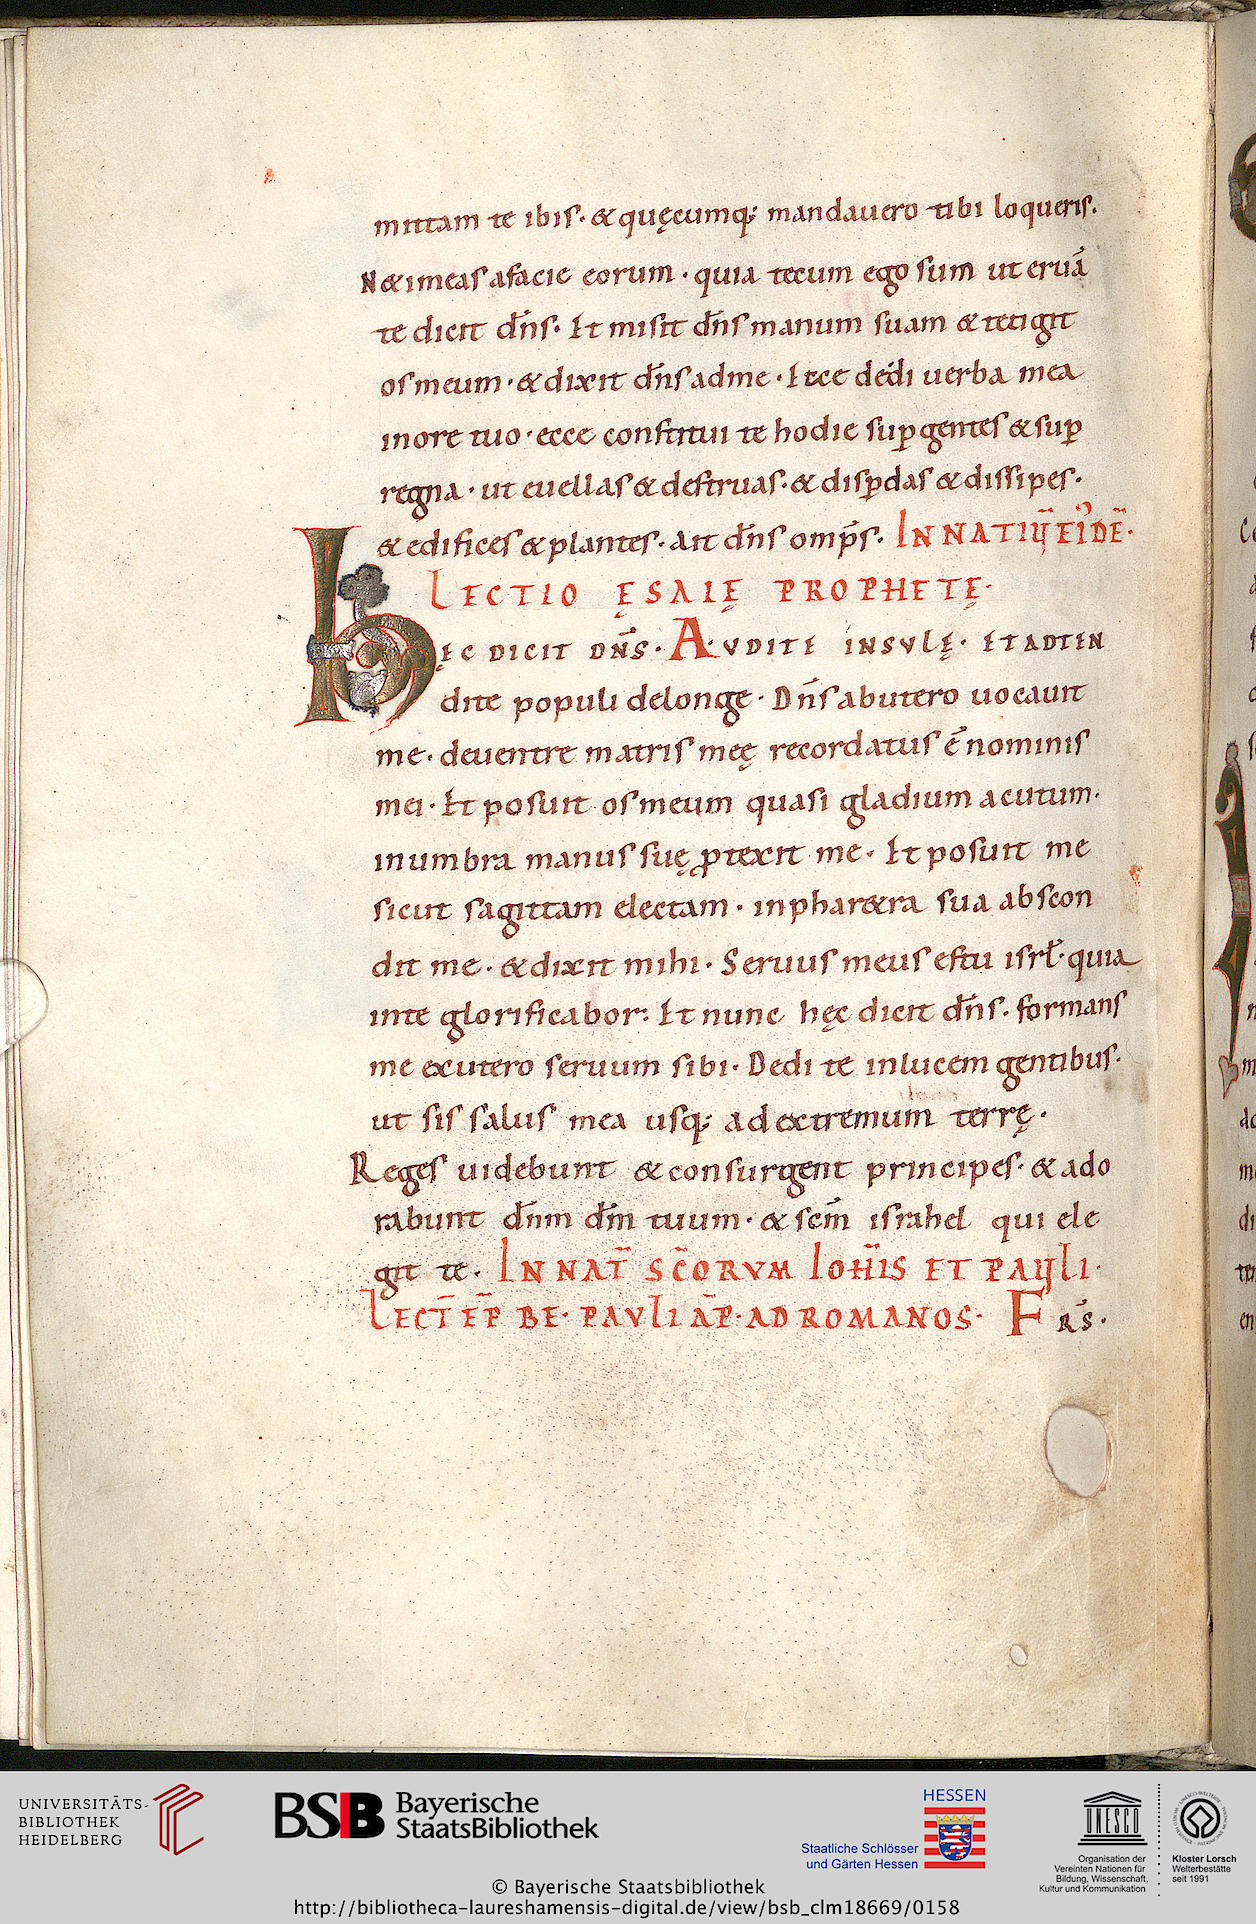 mittam te ibis· & quęcumq; mandauero tibi loqueris.
N& imeas afacie eorum · quia tecum ego sum ut eruā
te dicit dn̄s· Et misit dn̄s manum suam & tetigit
os meum · & dixit dn̄s adme · Ecce dedi uerba mea
inore tuo · ecce constitui te hodie sup̱ gentes & sup̱
regna · ut euellas & destruas · & disp̱das & dissipes·
& edifices & plantes· ait dn̄s omp̄s· IN NAT
LECTIO ĘSAIĘ PROPHETĘ·
HĘC DICIT DN̄S· AVDITE INSVLĘ· ET ADTEN
dite populi delonge · Dn̄s abutero uocauit
me · deuentre matris meę recordatus ē nominis
mei · Et posuit os meum quasi gladium acutum·
inumbra manus suę ꝓtexit me · Et posuit me
sicut sagittam electam · inphar&ra sua abscon
dit me · & dixit mihi · Seruus meus estu isrł· quia
inte glorificabor· Et nunc hęc dicit dn̄s· formans
me exutero seruum sibi · Dedi te inlucem gentibus·
ut sis salus mea usq; ad extremum terrę·
Reges uidebunt & consurgent principes· & ado
rabunt dn̄m dm̄ tuum · & scm̄ israhel qui ele
git te · IN NAT̄ SC̄ORVM IOHĪS ET PAULI·
LECT̄ EP̄ BE· PAVLI AP̄· AD ROMANOS· FRS̄·
UNIVERSITÄTS-
BIBLIOTHEK
HEIDELBERG
BSB Bayerische
StaatsBibliothek
HESSEN
Staatliche Schlösser
und Gärten Hessen
UNESCO
Organisation der
Vereinten Nationen für
Bildung, Wissenschaft,
Kultur und Kommunikation
Kloster Lorsch
Welterbestätte
seit 1991
© Bayerische Staatsbibliothek
http://bibliotheca-laureshamensis-digital.de/view/bsb_clm18669/0158